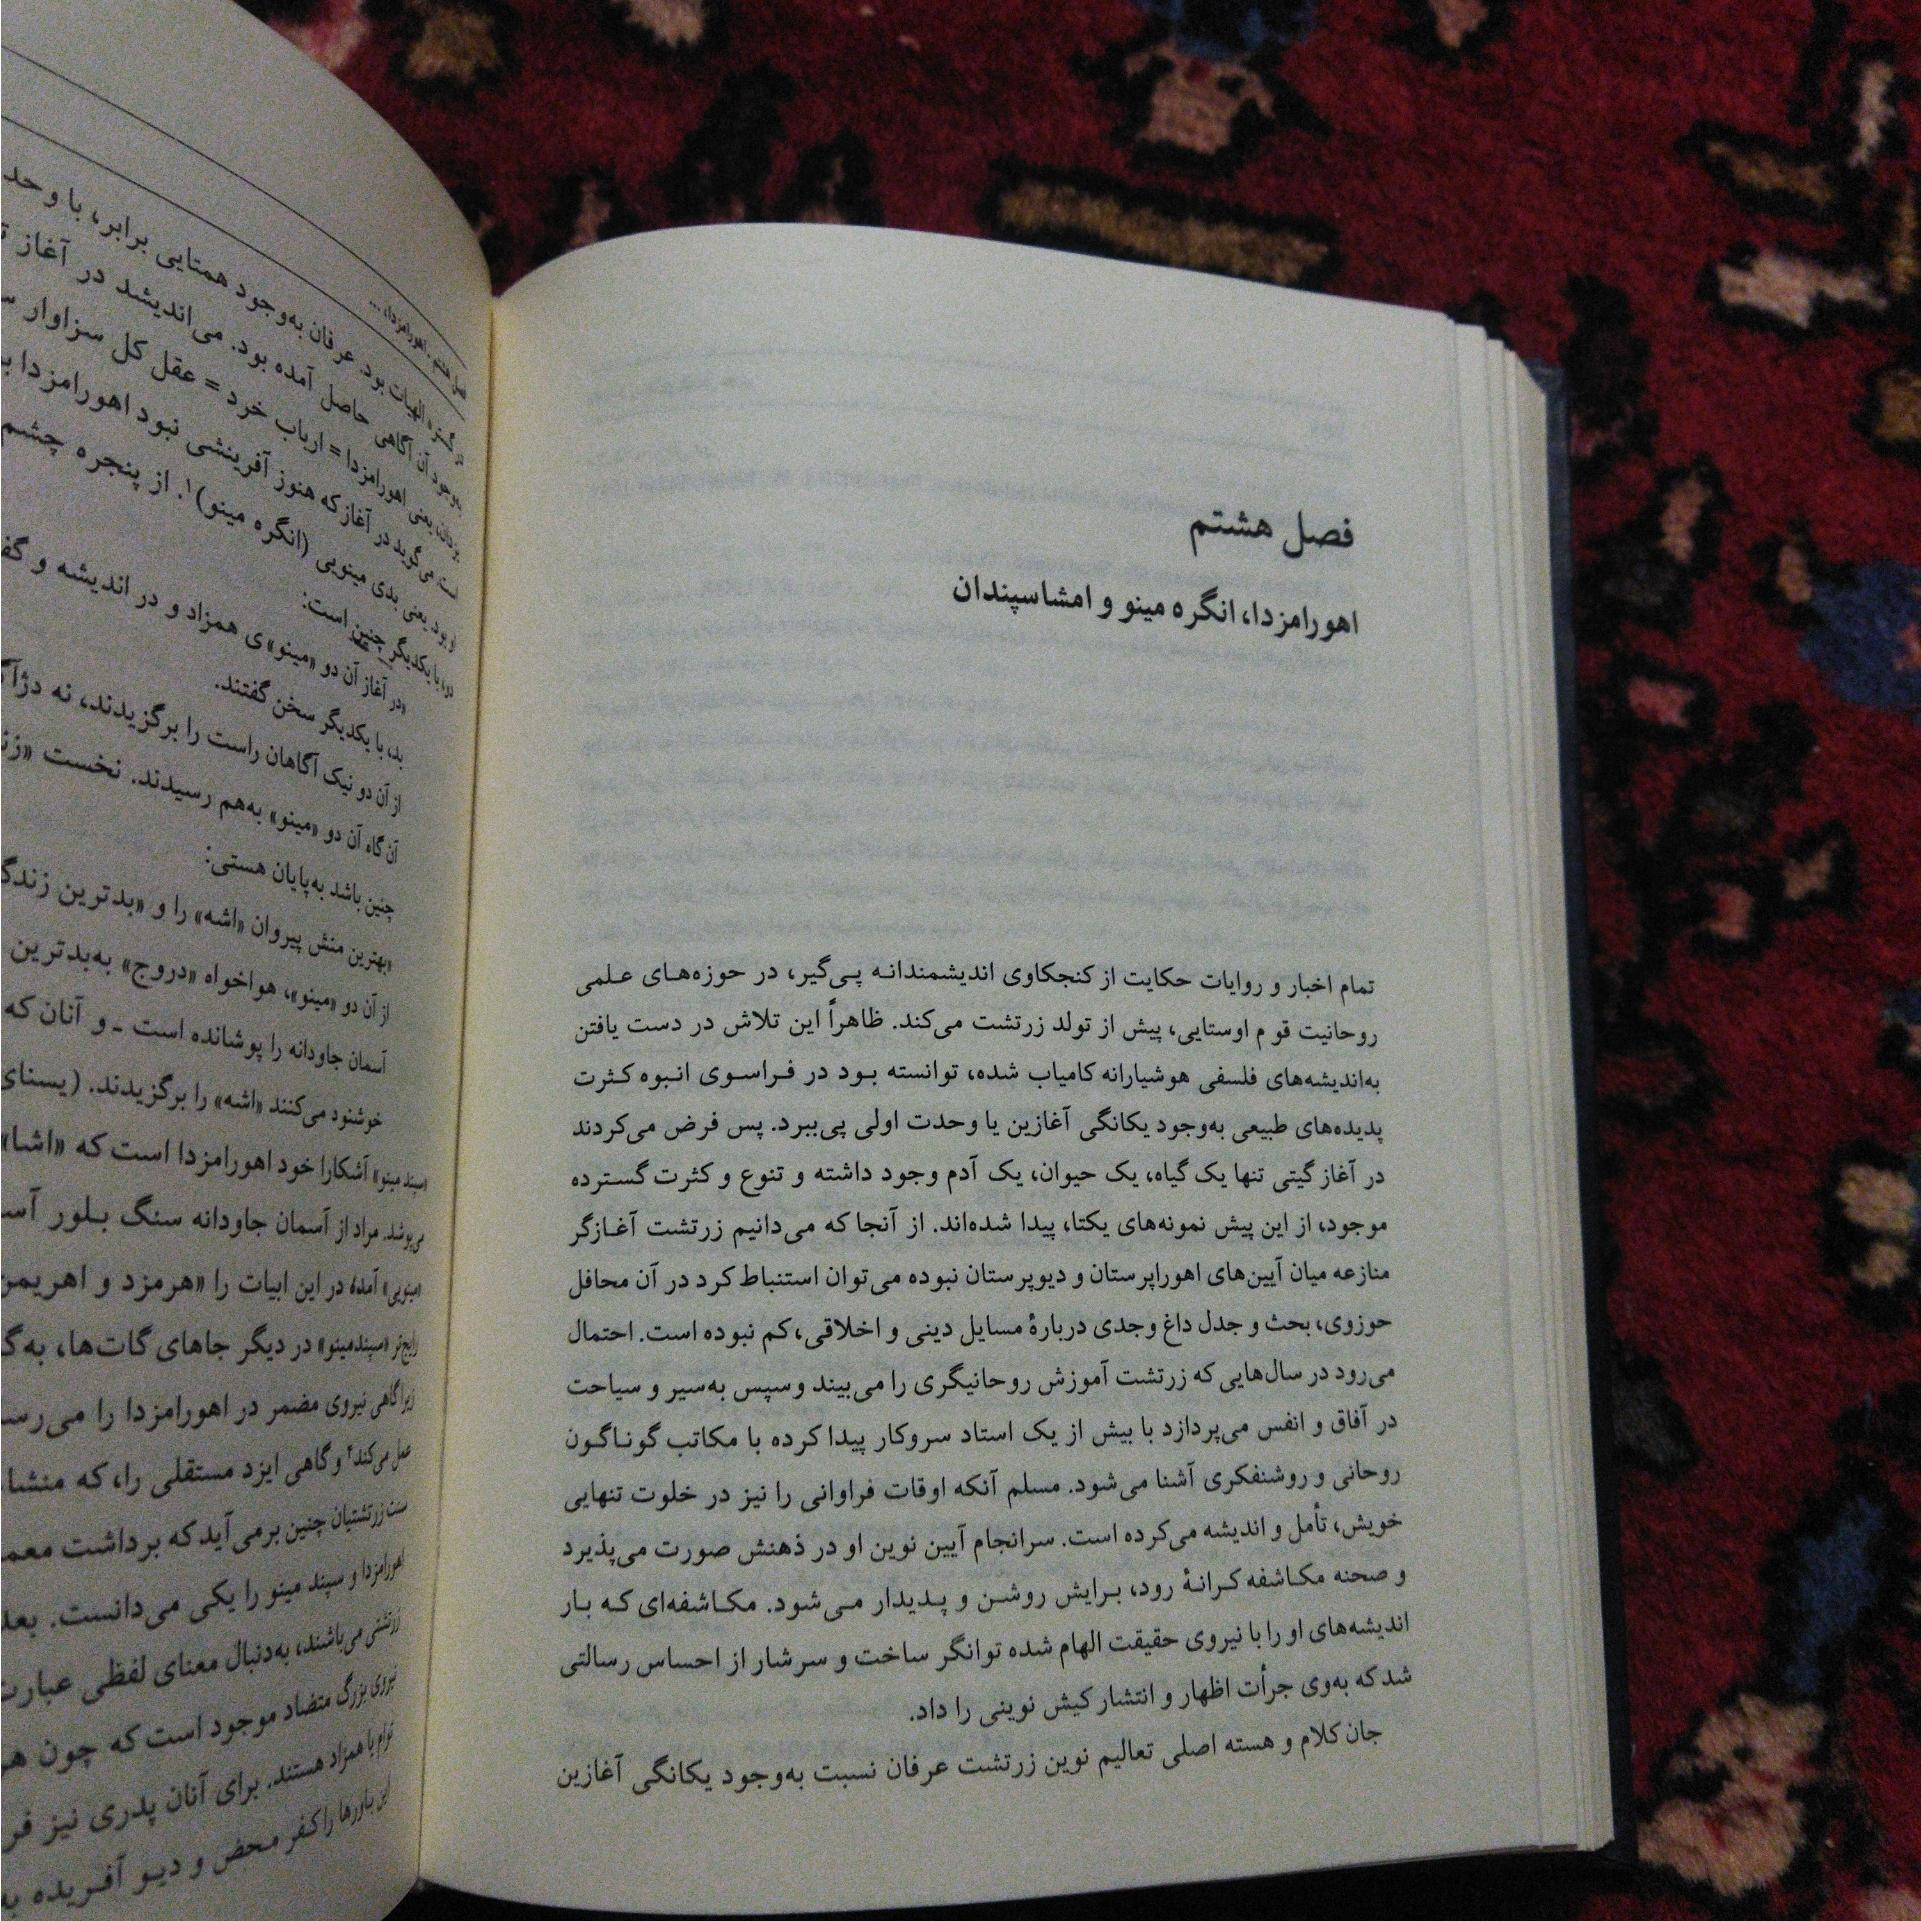 فصل هشتم
اهورامزدا، انگره مینو و امشاسپندان
تمام اخبار و روایات حکایت از کنجکاوی اندیشمندانه پی‌گیر، در حوزه‌های علمی
روحانیت قوم اوستایی، پیش از تولد زرتشت می‌کند. ظاهراً این تلاش در دست یافتن
به‌اندیشه‌های فلسفی هوشیارانه کامیاب شده، توانسته بود در فراسوی انبوه کثرت
پدیده‌های طبیعی به‌وجود یکانگی آغازین یا وحدت اولی پی‌ببرد. پس فرض می‌کردند
در آغاز گیتی تنها یک گیاه، یک حیوان، یک آدم وجود داشته و تنوع و کثرت گسترده
موجود، از این پیش نمونه‌های یکتا، پیدا شده‌اند. از آنجا که می‌دانیم زرتشت آغازگر
منازعه میان آیین‌های اهوراپرستان و دیوپرستان نبوده می‌توان استنباط کرد در آن محافل
حوزوی، بحث و جدل داغ وجدی دربارهٔ مسایل دینی و اخلاقی، کم نبوده است. احتمال
می‌رود در سال‌هایی که زرتشت آموزش روحانیگری را می‌بیند وسپس به‌سیر و سیاحت
در آفاق و انفس می‌پردازد با بیش از یک استاد سروکار پیدا کرده با مکاتب گوناگون
روحانی و روشنفکری آشنا می‌شود. مسلم آنکه اوقات فراوانی را نیز در خلوت تنهایی
خویش، تأمل و اندیشه می‌کرده است. سرانجام آیین نوین او در ذهنش صورت می‌پذیرد
و صحنه مکاشفه کرانهٔ رود، برایش روشن و پدیدار می‌شود. مکاشفه‌ای که بار
اندیشه‌های او را با نیروی حقیقت الهام شده توانگر ساخت و سرشار از احساس رسالتی
شد که به‌وی جرأت اظهار و انتشار کیش نوینی را داد.
جان کلام و هسته اصلی تعالیم نوین زرتشت عرفان نسبت به‌وجود یکانگی آغازین
فصل هشتم ـ اهورامزدا، ...
در گستره الهیات بود. عرفان به‌وجود همتایی برابر، با وحد
به‌وجود آن آگاهی حاصل آمده بود. می‌اندیشد در آغاز
یزدان، یعنی اهورامزدا = ارباب خرد = عقل کل سزاوار
است. می‌گوید در آغاز که هنوز آفرینشی نبود اهورامزدا
او بود یعنی بدی مینویی (انگره مینو)۱. از پنجره چشم
دو، با یکدیگر چنین است:
«در آغاز آن دو «مینو»ی همزاد و در اندیشه و گف
بد، با یکدیگر سخن گفتند.
از آن دو نیک آگاهان راست را برگزیدند، نه دژآ
آن گاه آن دو «مینو» به‌هم رسیدند. نخست «زن
چنین باشد به‌پایان هستی:
«بهترین منش پیروان «اشه» را و «بدترین زندگ
از آن دو «مینو»، هواخواه «دروج» به‌بدترین
آسمان جاودانه را پوشانده است ـ و آنان که
خوشنود می‌کنند «اشه» را برگزیدند. (یسنای
«سپند مینو» آشکارا خود اهورامزدا است که «اشا»
می‌پوشد. مراد از آسمان جاودانه سنگ بلور آس
«مینویی» آمده؛ در این ابیات را «هرمزد و اهریمن
رایج‌تر «سپندمینو» در دیگر جاهای گات‌ها، به‌گ
زیرا گاهی نیروی مضمر در اهورامزدا را می‌رس
عمل می‌کند۲ و گاهی ایزد مستقلی را، که منشا
سنت زرتشتیان چنین برمی‌آید که برداشت معم
اهورامزدا و سپند مینو را یکی می‌دانست. بعد
زرتشتی می‌باشند، به‌دنبال معنای لفظی عبارت
نیروی بزرگ متضاد موجود است که چون هر
توام یا همزاد هستند. برای آنان پدری نیز فر
این باورها را کفر محض و دیو آفریده